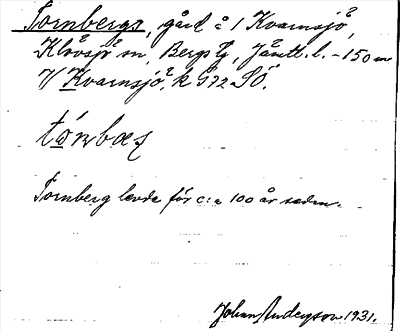 Tornbergs, gård å 1 Kvarnsjö,
Klövsjö sn, Bergs tg, Jämtl. l. - 150 m
V/ Kvarnsjö, k 572 SÖ.
Tornberg levde för c:a 100 år sedan.
Johan Anderson 1931.